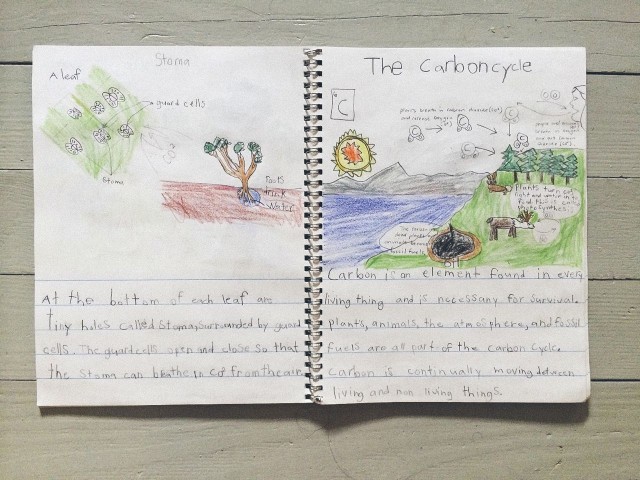 Stoma
A leaf
guard cells
Stoma
CO²
roots
drink
water
At the bottom of each leaf are
tiny holes called stoma, surrounded by guard
cells. The guard cells open and close so that
the stoma can breathe in CO² from the air.
The Carboncycle
C
plants breath in carbon dioxide (CO²)
and release oxygen
Plants turn sun
light and water in to
food this is called
photosynthes.
dead plants and
fossil fuels
Carbon is an element found in every
living thing and is necessary for survival.
Plants, animals, the atmosphere, and fossil
fuels are all part of the carbon cycle.
Carbon is continually moving between
living and non living things.